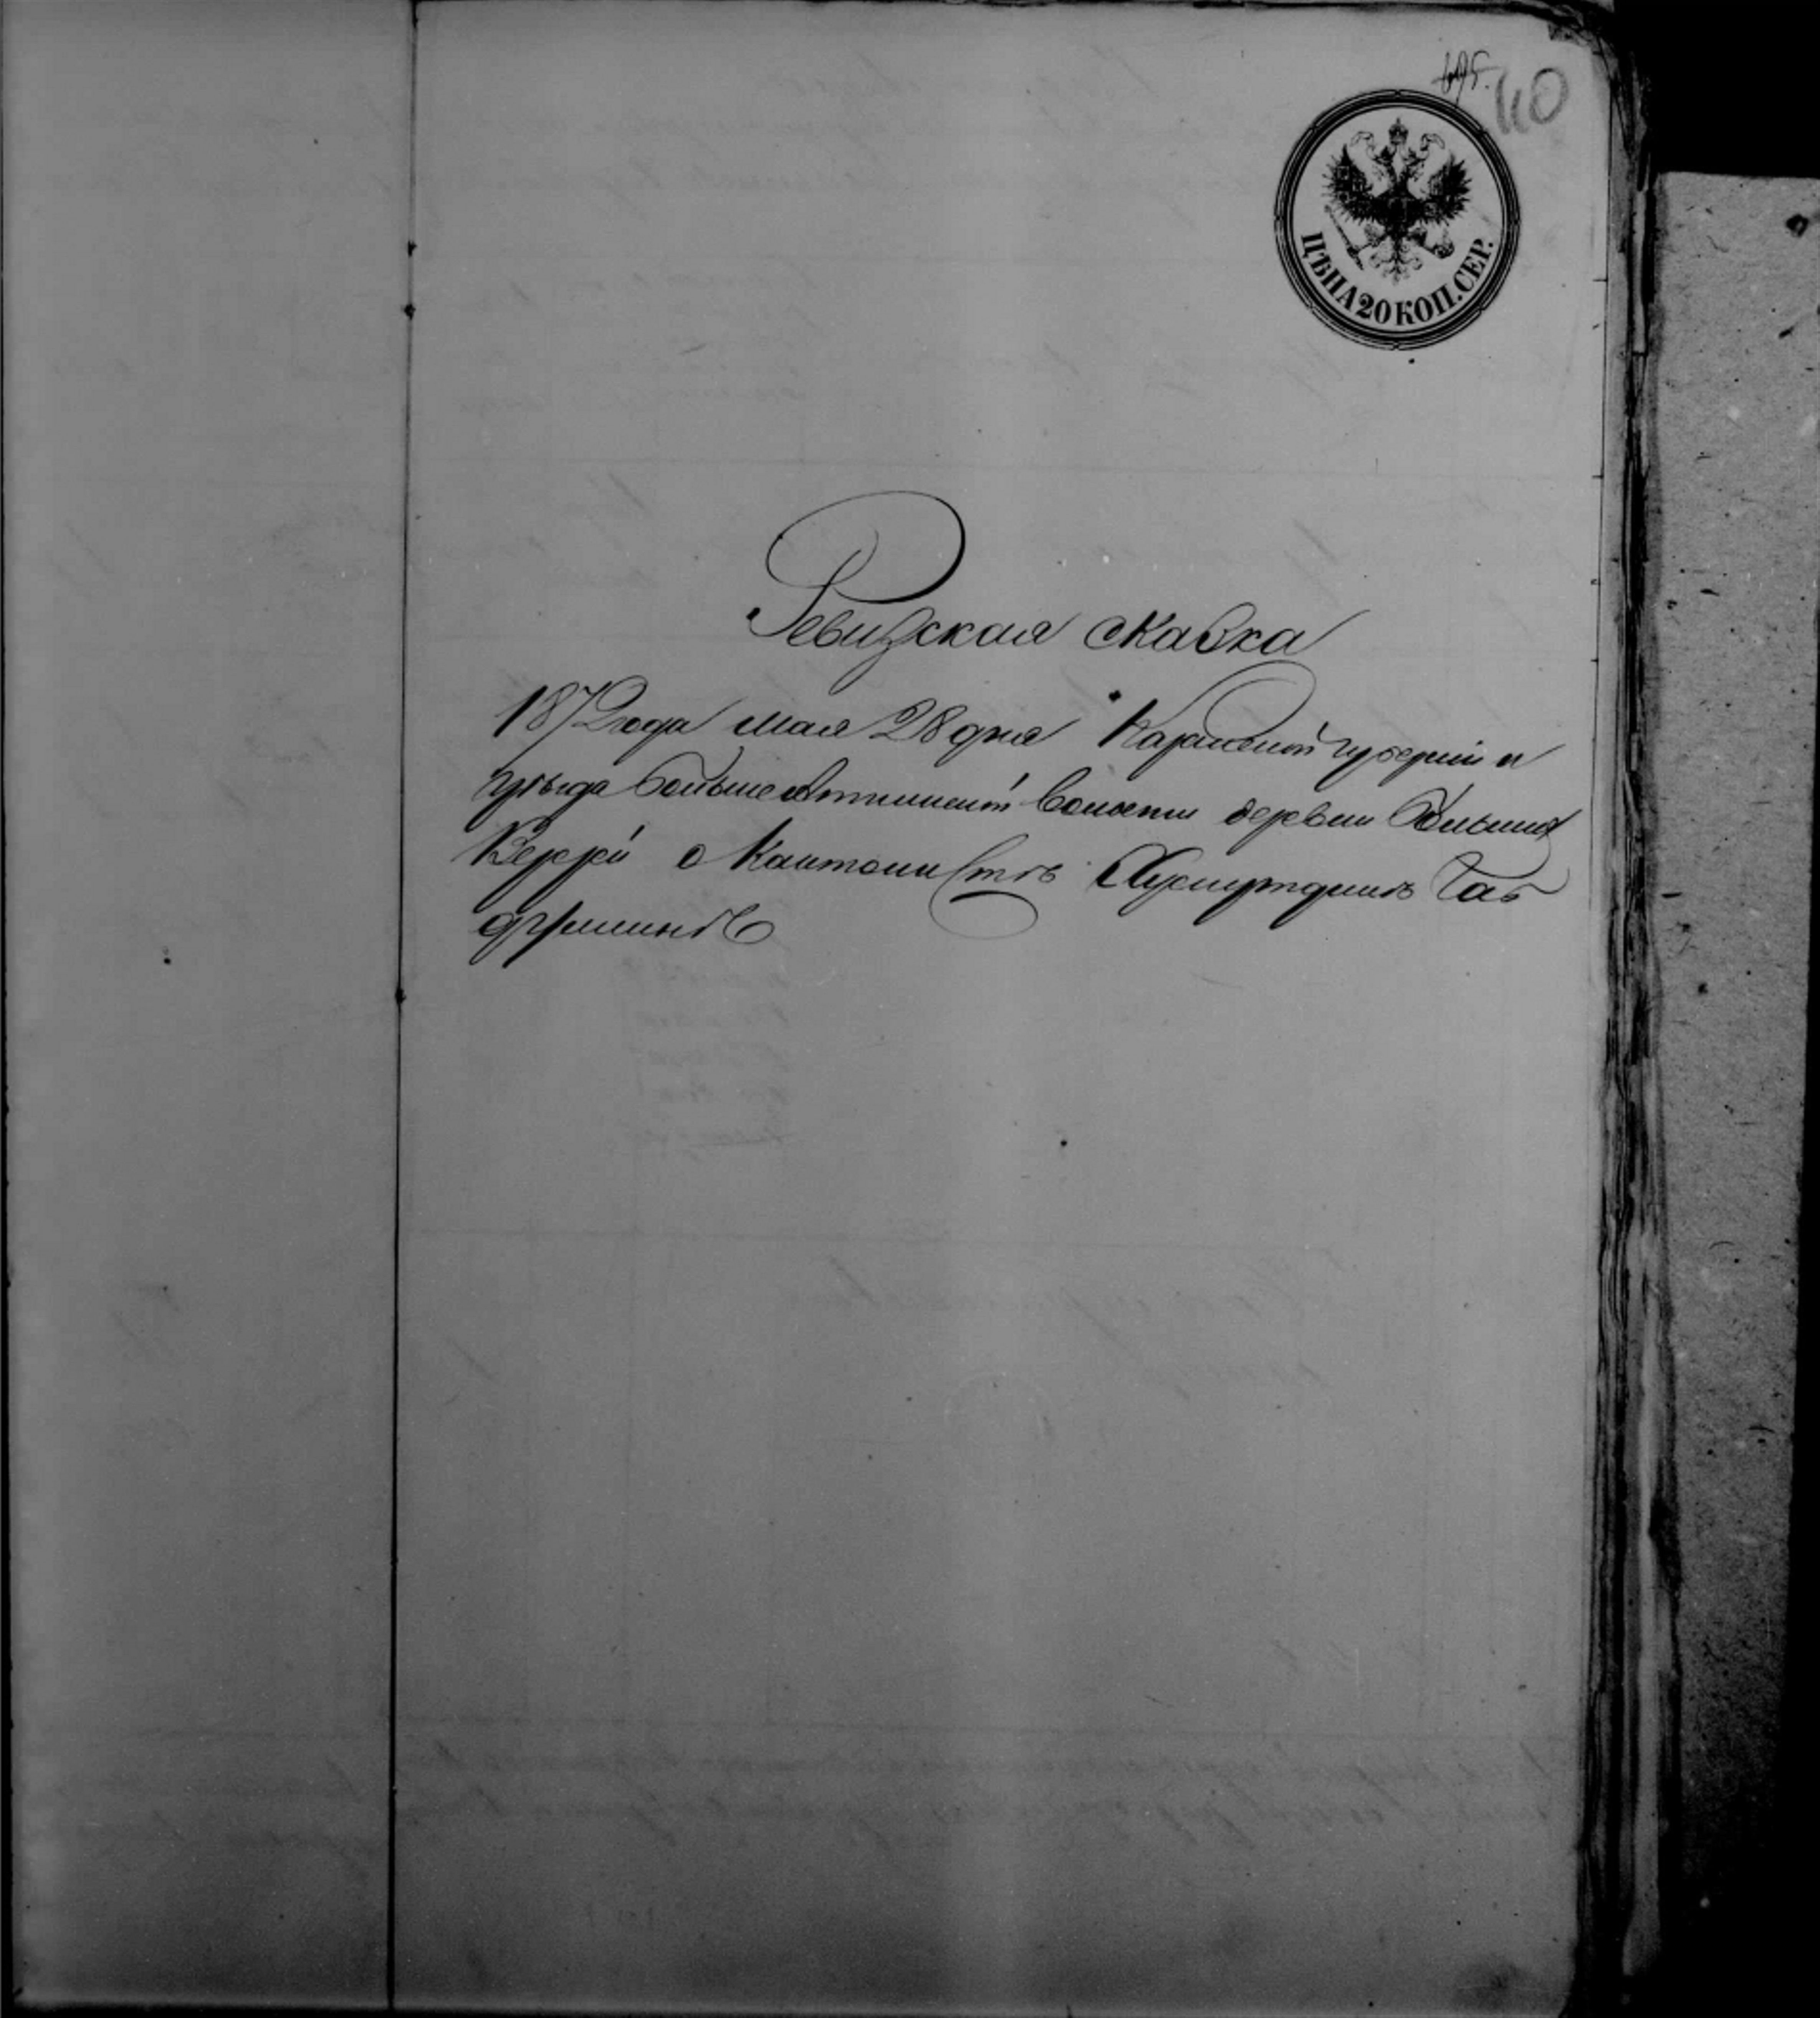 695.
110
ЦѢНА 20 КОП. СЕР.
Ревизская сказка
1872 года мая 28 дня Казанской губерніи и
уѣзда большеатнинской волости деревни большихъ
Верези о Кантонистѣ Хуснутдинъ Габ